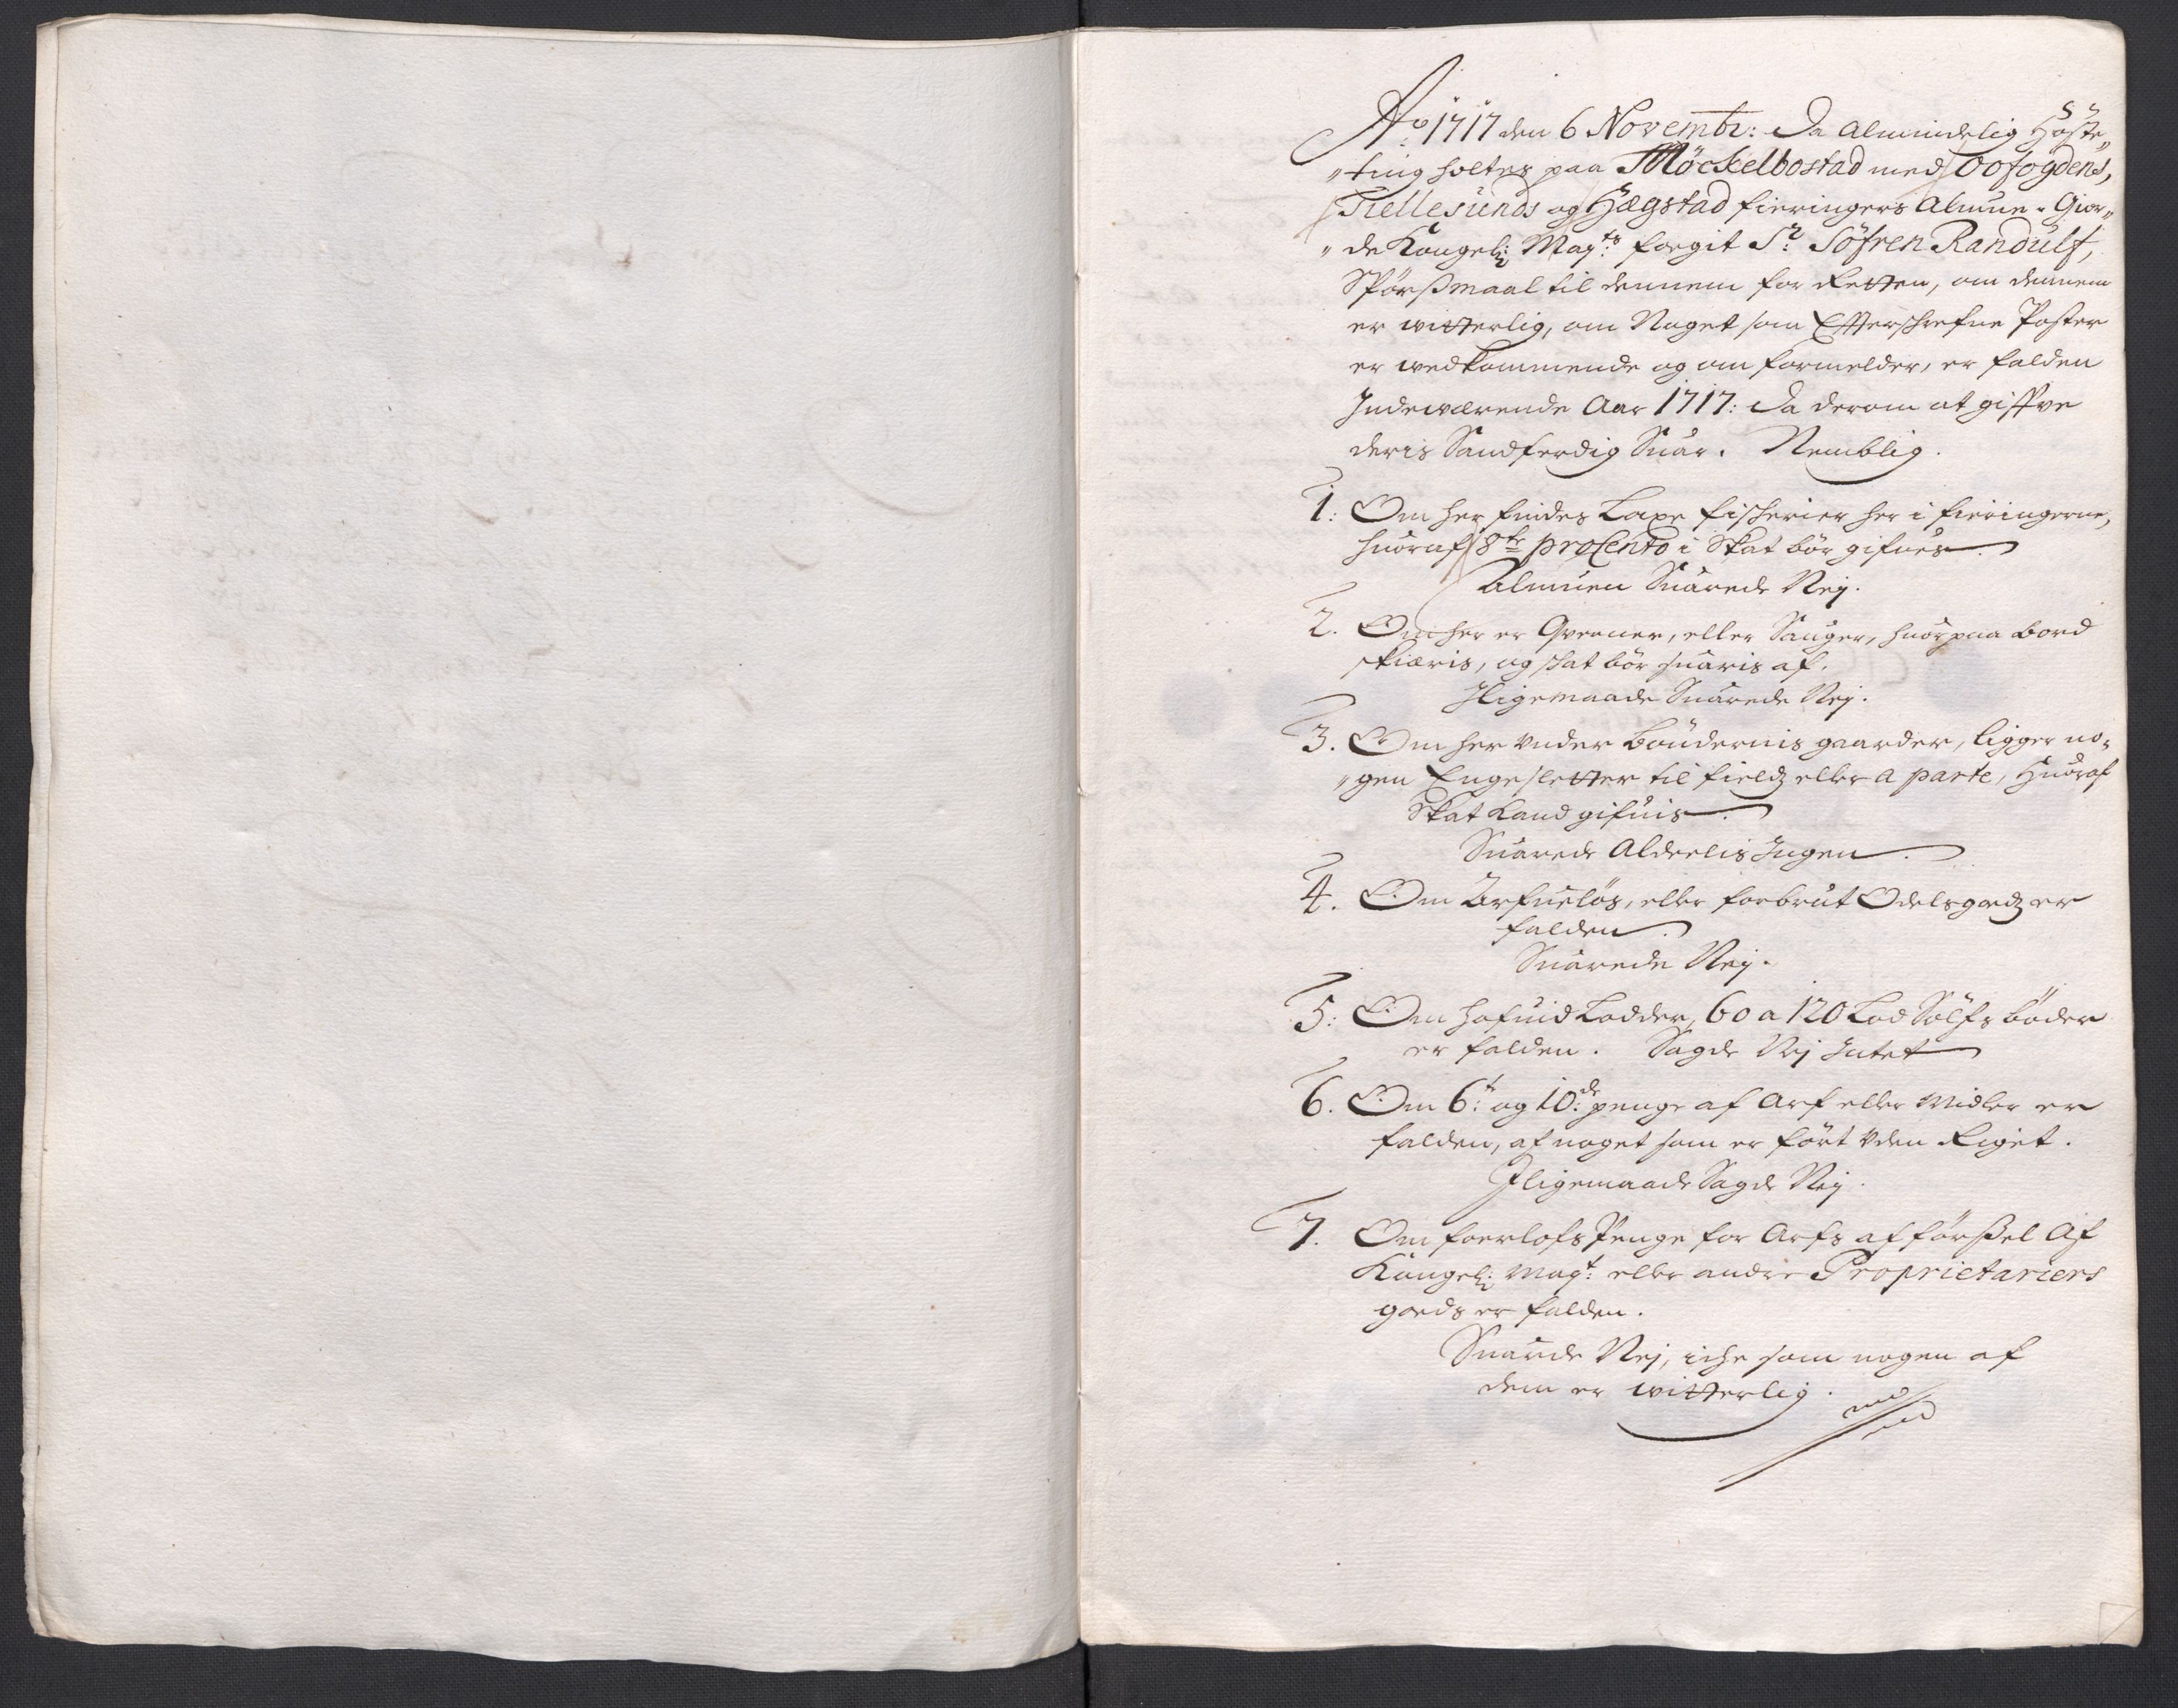 Ao. 1717 den 6 Novembr: Da Almindelig Höste„
„ting holtes paa Möckelbostad med Oofogdens,
Tiellesunds og Hægstad fieringers Almue. Gior„
„de Kongel: Mayts. foegit Sr. Söfren Randulf,
Spörsmaal til dennem for Retten, om dennem
er witterlig, om Noget som Efterschrefne Poster
er wedkommende og om formelder, er falden
Indewærende Aar 1717: Da derom at giffve
deris Sandferdig Suar. Nemblig.
1: Om her findes Laxe fischerier her i fieringerne,
huoraf 8te proCento i Skat bör gifues.
Almuen Suarede Nej.
2. Om her er Qverner, eller Sauger, huorpaa bord
skiæris, og skat bör suaris af.
Iligemaade Suarede Nej.
3. Om her under böndernis gaarder, ligger no„
„gen Engesletter til fields eller a parte, Huoraf
Skat Kand gifuis.
Suarede Aldeelis Ingen.
4. Om Arfueløs, eller forbrut Odelsgods er
falden.
Suarede Nej.
5: Om hofuid Lodder, 60 a 120 Lod Sölfs böder
er falden. Sagde Nej Intet
6. Om 6t: og 10de: penge af Arf eller Midler er
falden, af noget som er fört uden Riget.
Iligemaade Sagde Nej.
7. Om foerlofs Penge for Arfs afförsel Af
Kongel: Mayt: eller andre Proprietariers
gods er falden.
Suarede Nej, iche som nogen af
dem er witterlig.